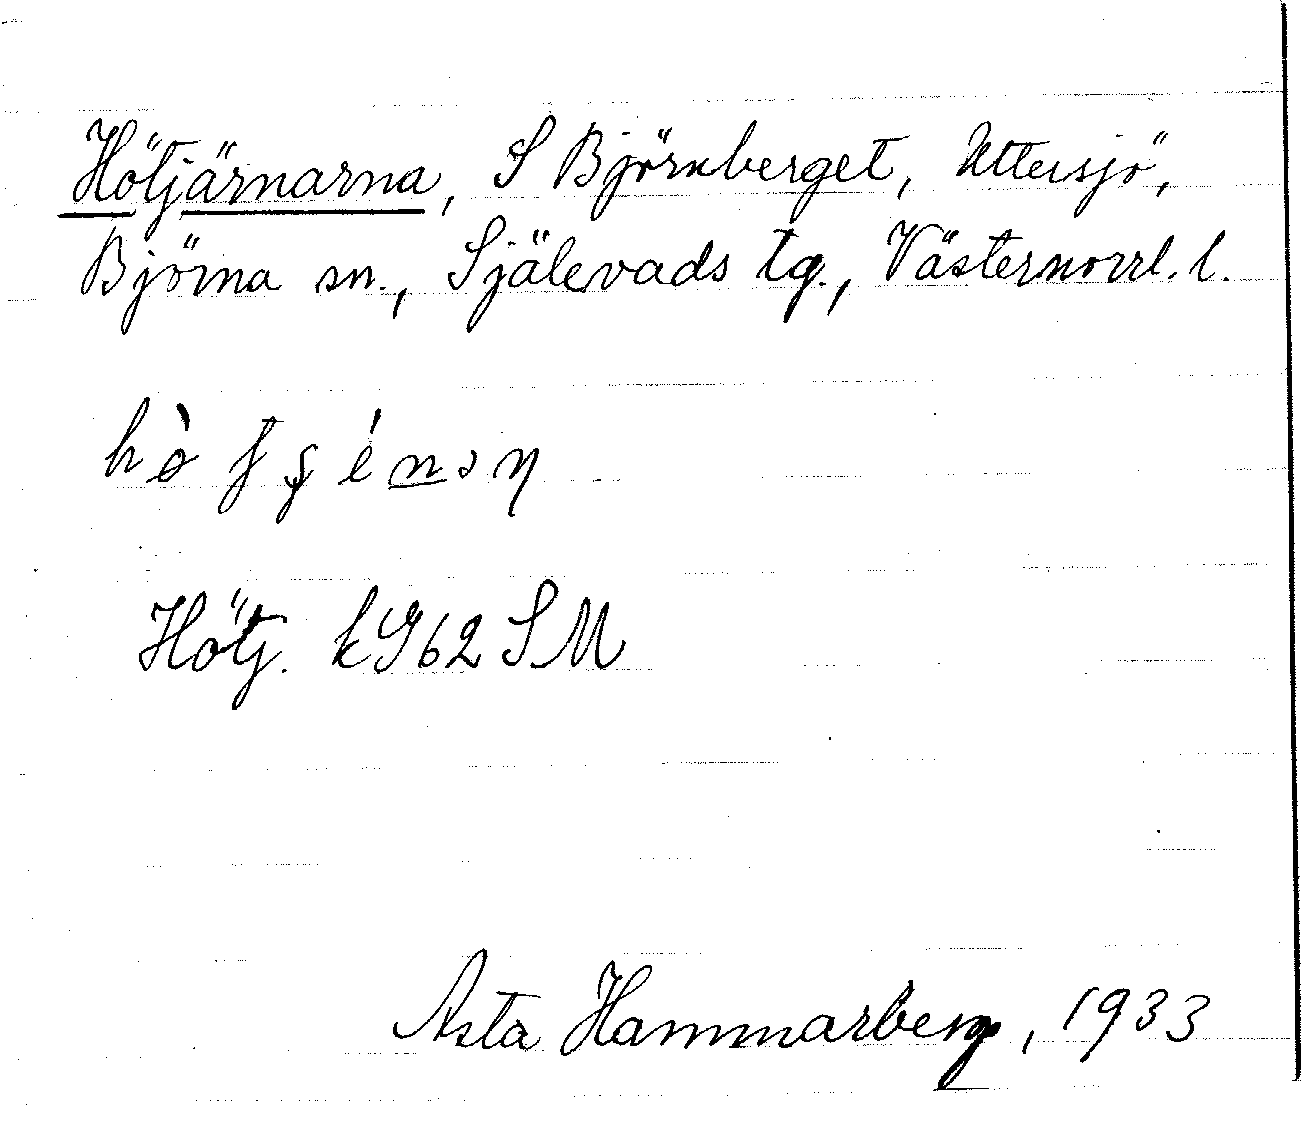 Hötjärnarna, S Björnberget, Uttersjö,
Björna sn., Själevads tg., Västernorrl. l.
Hötj. k962 SM
Asta Hammarberg, 1933